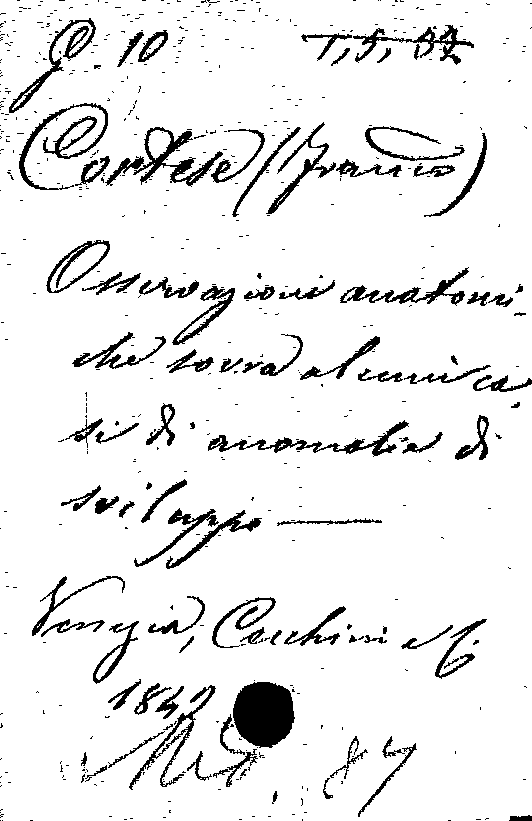 G. 10 1, 5, 32
Cortese (Franco)
Osservazioni anatomi-
che sovra alcuni ca-
si di anomalie di
sviluppo —
Venezia, Cecchini e C.
1842
Med. 87